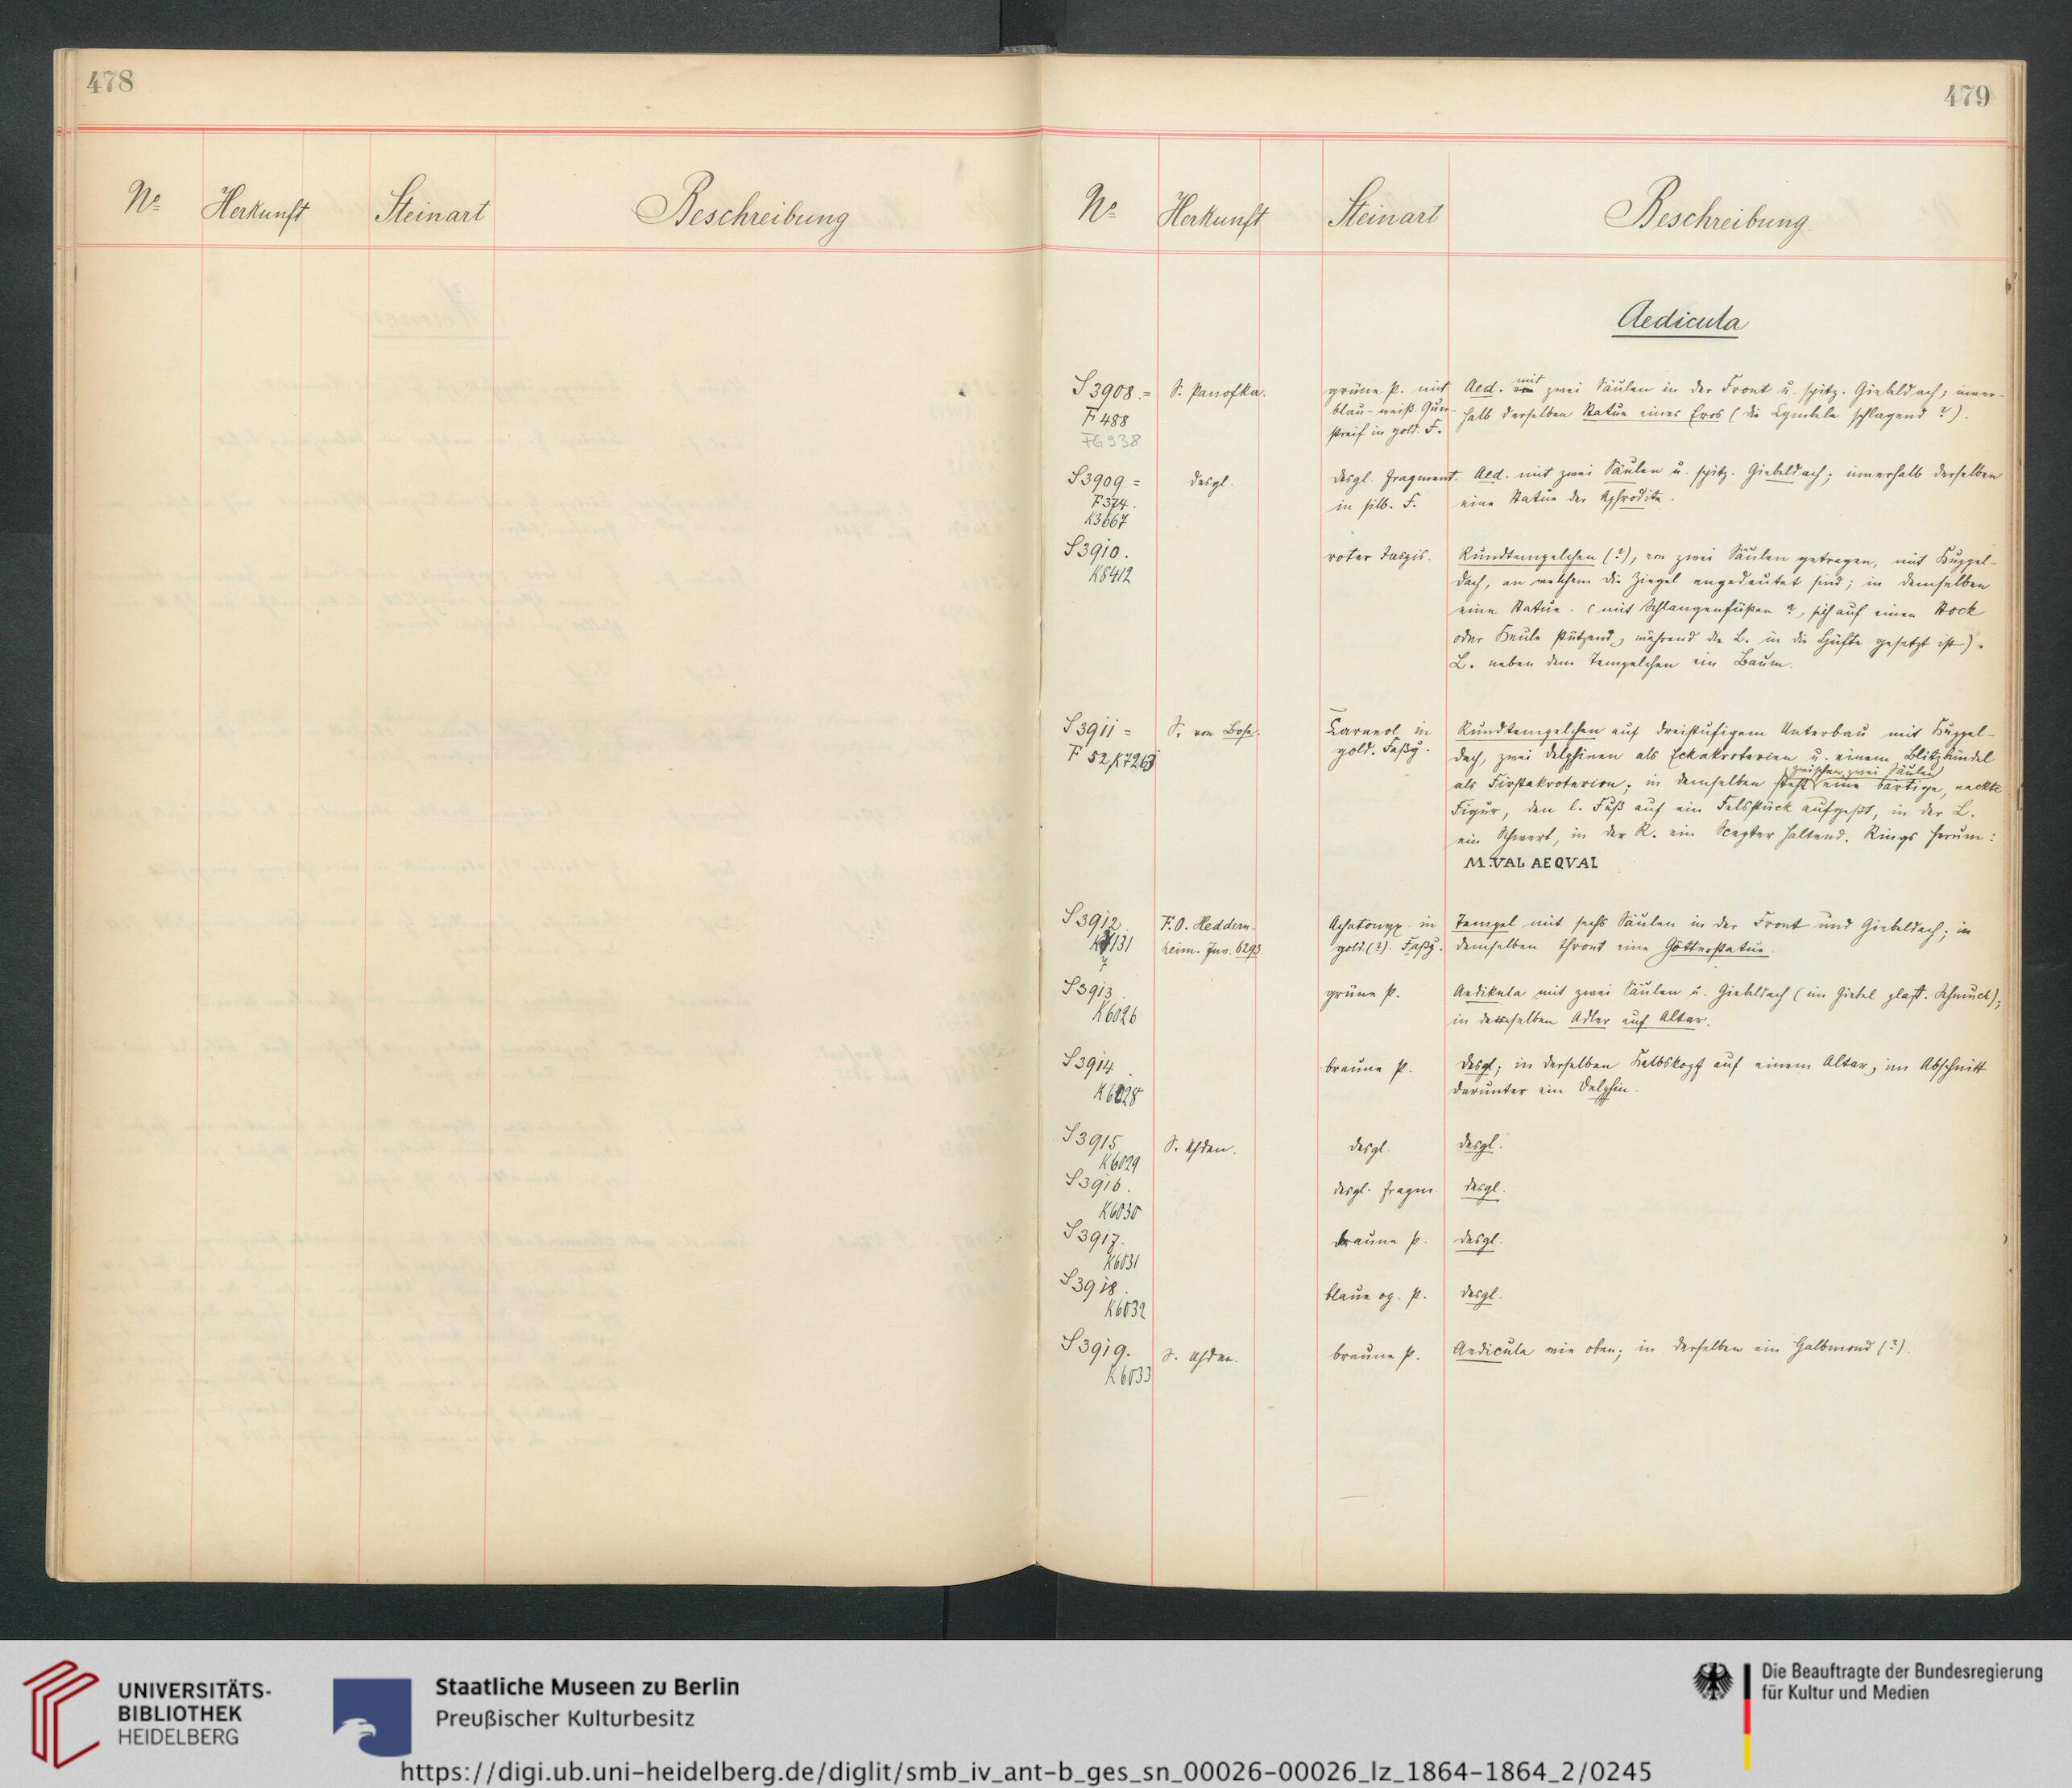 478
479
Nº Herkunft Steinart Beschreibung
Nº Herkunft Steinart Beschreibung
Aedicula
S 3908. = S. Panofka. grüne P. mit Aed. mit zwei Säulen in der Front u. spitz. Giebeldach; inner-
F 488 blau-weiß. Quer- halb derselben Statue eines Eros (die Cymbeln schlagend?).
FG 938 streif in gold. F.
S 3909. = desgl. desgl. fragment. Aed. mit zwei Säulen u. spitz. Giebeldach; innerhalb derselben
F 374. in silb. F. eine Statue der Aphrodite.
K3667
S 3910. roter Jaspis. Rundtempelchen (?), von zwei Säulen getragen, mit Kuppel-
K8412 dach, an welchem die Ziegel angedeutet sind; in demselben
eine Statue. (mit Schlangenfüßen?, sich auf einen Stock
oder Keule stützend, während die L. in die Hüfte gesetzt ist).
L. neben dem Tempelchen ein Baum.
S 3911 = S. von Bose. Karneol in Rundtempelchen auf dreistufigem Unterbau mit Kuppel-
F 52/K7263 gold. Faßg. dach, zwei Delphinen als Eckakroterien u. einem Blitzbündel
als Firstakroterion; in demselben steht zwischen zwei Säulen eine bärtige, nackte
Figur, den l. Fuß auf ein Felsstück aufgesetzt, in der L.
ein Schwert, in der R. ein Scepter haltend. Rings herum:
M.VAL AEQVAL
S 3912. F.O. Heddern- Achatonyx in Tempel mit sechs Säulen in der Front und Giebeldach; in
K7131 heim. Inv. 6293. gold.(?) Faßg. demselben thront eine Götterstatue.
S 3913. grüne P. Aedikula mit zwei Säulen u. Giebeldach (im Giebel plast. Schmuck);
K6026 in derselben Adler auf Altar.
S 3914. braune P. desgl; in derselben Kalbskopf auf einem Altar, im Abschnitt
K6028 darunter ein Delphin.
S 3915 S. Uhden. desgl. desgl.
K6029
S 3916. desgl. fragm. desgl.
K6030
S 3917. braune P. desgl.
K6031
S 3918. blaue op. P. desgl.
K6032
S 3919. S. Uhden. braune P. Aedicula wie oben; in derselben ein Halbmond (?).
K6033
UNIVERSITÄTS-
BIBLIOTHEK
HEIDELBERG
Staatliche Museen zu Berlin
Preußischer Kulturbesitz
Die Beauftragte der Bundesregierung
für Kultur und Medien
https://digi.ub.uni-heidelberg.de/diglit/smb_iv_ant-b_ges_sn_00026-00026_lz_1864-1864_2/0245